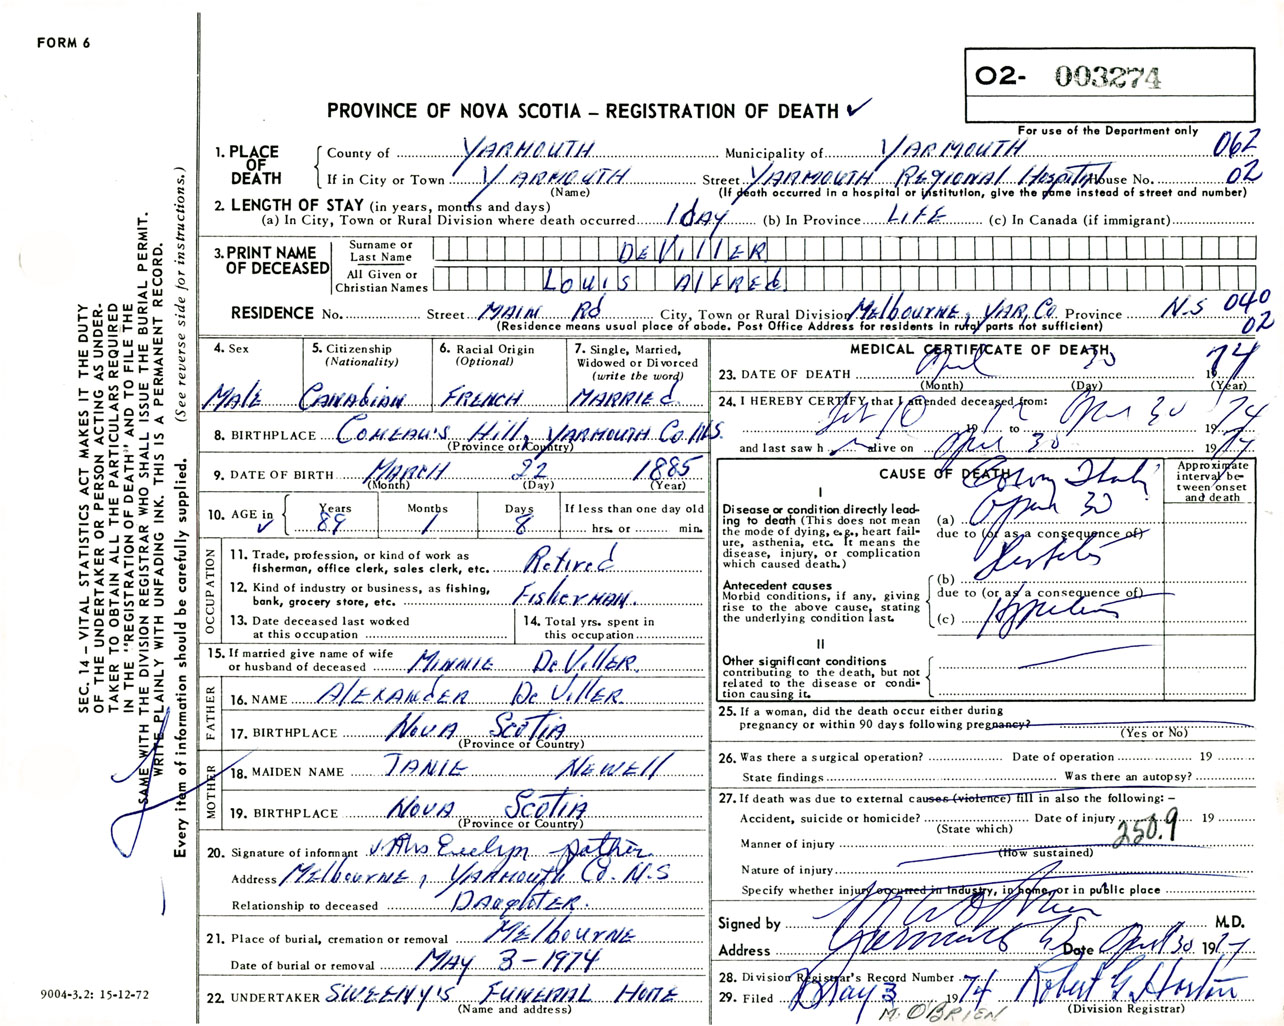 FORM 6
O2- 003274
PROVINCE OF NOVA SCOTIA – REGISTRATION OF DEATH ✓
For use of the Department only
SEC. 14 – VITAL STATISTICS ACT MAKES IT THE DUTY
OF THE UNDERTAKER OR PERSON ACTING AS UNDER-
TAKER TO OBTAIN ALL THE PARTICULARS REQUIRED
IN THE "REGISTRATION OF DEATH" AND TO FILE THE
SAME WITH THE DIVISION REGISTRAR WHO SHALL ISSUE THE BURIAL PERMIT.
WRITE PLAINLY WITH UNFADING INK. THIS IS A PERMANENT RECORD.
Every item of information should be carefully supplied. (See reverse side for instructions.)
1. PLACE OF DEATH
County of YARMOUTH Municipality of YARMOUTH 062
If in City or Town YARMOUTH Street YARMOUTH REGIONAL Hospital House No. 02
(Name) (If death occurred in a hospital or institution, give the name instead of street and number)
2. LENGTH OF STAY (in years, months and days)
(a) In City, Town or Rural Division where death occurred 1 day (b) In Province LIFE (c) In Canada (if immigrant)
3. PRINT NAME OF DECEASED
Surname or Last Name DeVILLER
All Given or Christian Names LOUIS ALFRED
RESIDENCE No. Street MAIN Rd City, Town or Rural Division Melbourne, Yar. Co. Province N.S 040
(Residence means usual place of abode. Post Office Address for residents in rural parts not sufficient) 02
4. Sex
Male
5. Citizenship
(Nationality)
CANADIAN
6. Racial Origin
(Optional)
FRENCH
7. Single, Married,
Widowed or Divorced
(write the word)
MARRIED
8. BIRTHPLACE COMEAU'S Hill, YARMOUTH Co. N.S.
(Province or Country)
9. DATE OF BIRTH MARCH 22 1885
(Month) (Day) (Year)
10. AGE in ✓ Years 89 Months 1 Days 8 If less than one day old
hrs. or min.
OCCUPATION
11. Trade, profession, or kind of work as
fisherman, office clerk, sales clerk, etc. Retired
12. Kind of industry or business, as fishing,
bank, grocery store, etc. Fisherman.
13. Date deceased last worked
at this occupation
14. Total yrs. spent in
this occupation
15. If married give name of wife
or husband of deceased MINNIE DeViller
FATHER
16. NAME ALEXANDER DeViller
17. BIRTHPLACE NOVA SCOTIA
(Province or Country)
MOTHER
18. MAIDEN NAME JANIE NEWELL
19. BIRTHPLACE NOVA SCOTIA
(Province or Country)
20. Signature of informant Mrs Evelyn
Address Melbourne, Yarmouth Co. N.S
Relationship to deceased Daughter.
21. Place of burial, cremation or removal Melbourne
Date of burial or removal MAY 3-1974
22. UNDERTAKER SWEENY'S FUNERAL HOME
(Name and address)
MEDICAL CERTIFICATE OF DEATH
23. DATE OF DEATH April 30 1974
(Month) (Day) (Year)
24. I HEREBY CERTIFY, that I attended deceased from:
19 to April 30 1974
and last saw h alive on April 30 1974
CAUSE OF DEATH
Approximate
interval be-
tween onset
and death
I
Disease or condition directly lead-
ing to death (This does not mean
the mode of dying, e.g., heart fail-
ure, asthenia, etc. It means the
disease, injury, or complication
which caused death.)
(a) April 30
due to (or as a consequence of)
Antecedent causes
Morbid conditions, if any, giving
rise to the above cause, stating
the underlying condition last.
(b)
due to (or as a consequence of)
(c)
II
Other significant conditions
contributing to the death, but not
related to the disease or condi-
tion causing it.
25. If a woman, did the death occur either during
pregnancy or within 90 days following pregnancy?
(Yes or No)
26. Was there a surgical operation? Date of operation 19
State findings Was there an autopsy?
27. If death was due to external causes (violence) fill in also the following: –
Accident, suicide or homicide? Date of injury 19
(State which)
250.9
Manner of injury
(How sustained)
Nature of injury
Specify whether injury occurred in industry, in home, or in public place
Signed by M.D.
Address Yarmouth NS Date April 30 19
28. Division Registrar's Record Number
29. Filed May 3 1974 Robert G. Horton
M. O'BRIEN (Division Registrar)
9004-3.2: 15-12-72